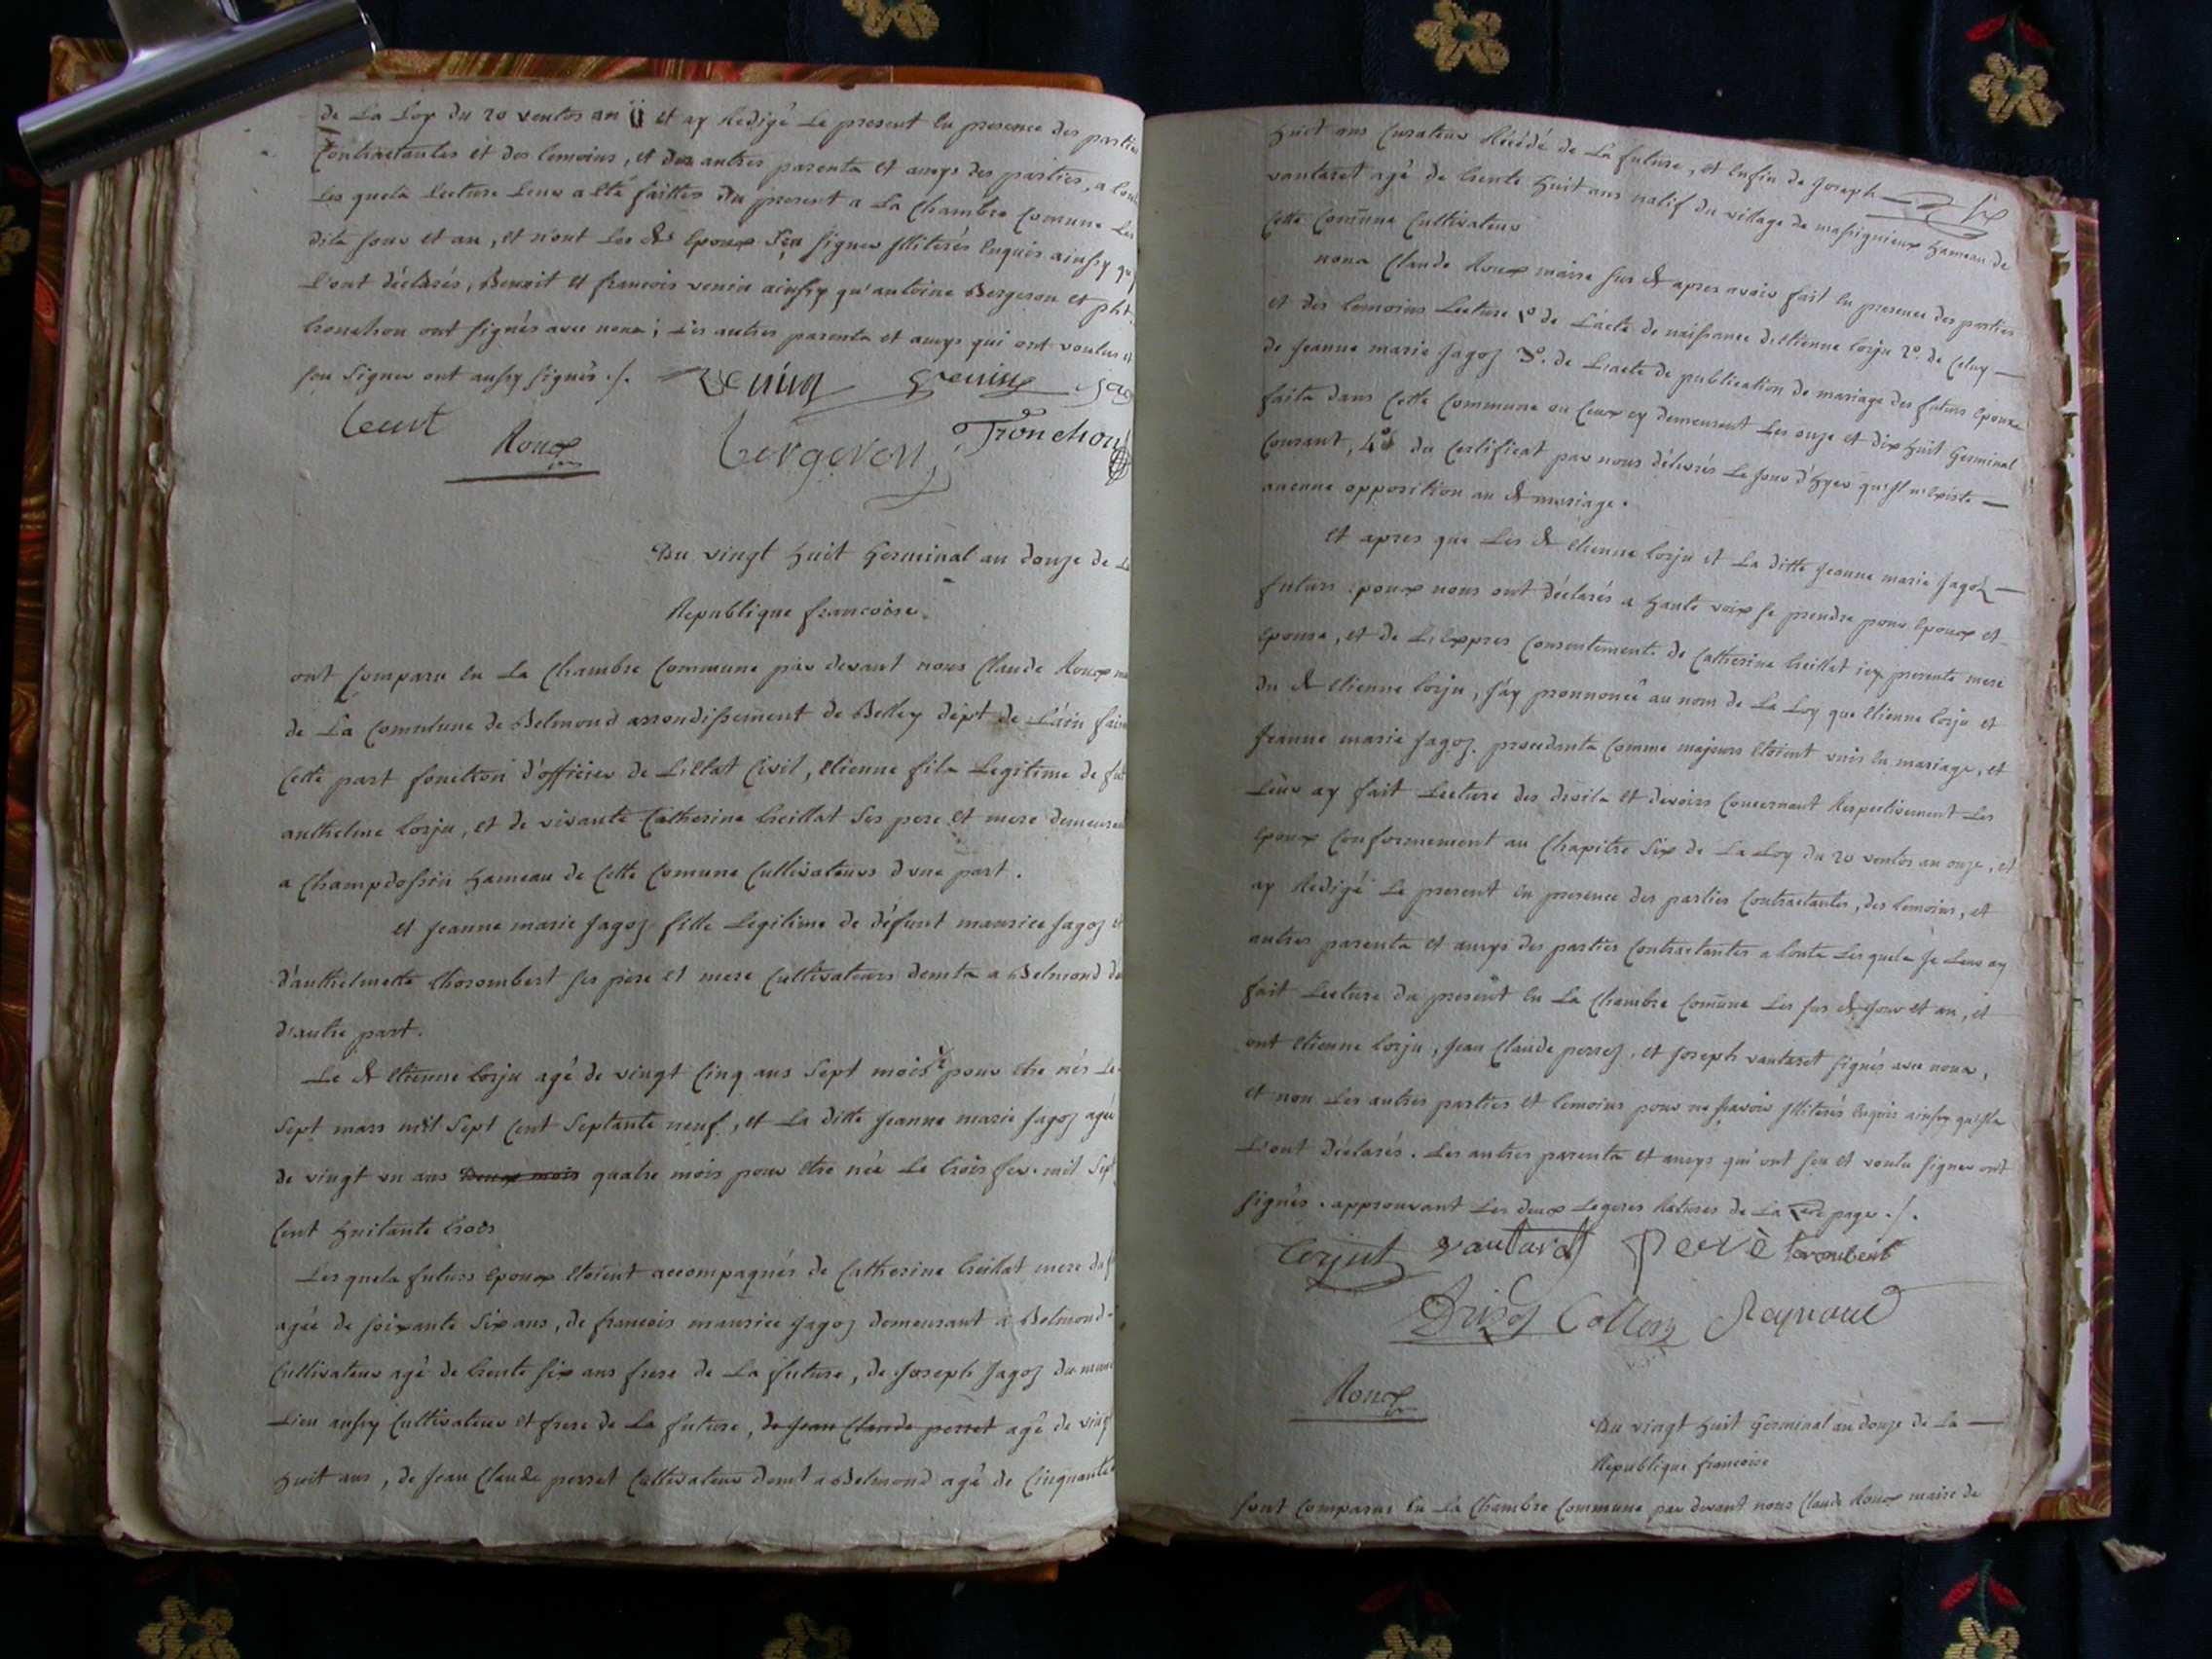 de La Loy du 20 ventos an ii et ay Redigé Le present En presence des parties
Contractantes et des temoins, et des autres parents et amys des parties, a
Les quels Lecture Leur a été faittes du present a La Chambre Comune Les
dits jour et an, et n'ont Les dts Epoux Seu signer illiterés Enquis ainssy qu
L'ont déclarés, Benoit et francois venin ainssy qu'antoine Bergeron et pht
tronchon ont signés avec nous; Les autres parents et amys qui ont voulus et
seu Signer ont aussy signés ./. Venin Venin
Roux Bergeron Tronchon
Du vingt huit Germinal an douze de La
Republique francoise
ont Comparu En La Chambre Commune par devant nous Claude Roux
de La Commune de Belmond arrondissement de Belley dépt de L'ain
Cette part fonction d'officier de L'Etat Civil, Etienne fils Legitime de
anthelme Corju, et de vivante Catherine treillat Ses pere et mere
a Champdossin hameau de Cette Comune Cultivateurs d'une part.
et Jeanne marie Jagoz fille Legitime de défunt maurice Jagoz et
d'anthelmette thorombert ses pere et mere Cultivateurs demts a Belmond
d'autre part.
Le dt Etienne Corju agé de vingt Cinq ans Sept mois pour etre nés Le
Sept mars mil Sept Cent Septante neuf, et La ditte Jeanne marie Jagoz agée
de vingt un ans deux mois quatre mois pour etre née Le trois fev. mil Sept
Cent huitante trois
Les quels futurs Epoux Etoient accompagnés de Catherine treillat mere du
agée de soixante Six ans, de francois maurice Jagoz demeurant a Belmond
Cultivateur agé de trente six ans frere de La future, de Joseph Jagoz du meme
Lieu aussy Cultivateur et frere de La future, de Jean Claude perret agé de vingt
huit ans, de Jean Claude perret Cultivateur demt a Belmond agé de Cinquante
huit ans Curateur de La future, et Enfin de Joseph
vautaret agé de trente huit ans natif du village de massignieux hameau de
Cette Comune Cultivateur
nous Claude Roux maire sus dt apres avoir fait En presence des parties
et des temoins Lecture 1° de L'acte de naissance d'Etienne Corju 2°. de Celuy
de Jeanne marie Jagoz 3°. de L'acte de publication de mariage des futurs Epoux
faits dans Cette Commune ou Ceux cy demeurent Les onze et dix huit Germinal
Courant, 4° du Certificat par nous délivrés Le jour d'hyer qu'il n'existe
aucune opposition au dt mariage.
Et apres que Les dt Etienne Corju et La ditte Jeanne marie Jagoz
futurs Epoux nous ont déclarés a haute voix se prendre pour Epoux et
Epouse, et de L'expres Consentement de Catherine treillat icy presente mere
du dt Etienne Corju, j'ay prononcé au nom de La Loy que Etienne Corju et
Jeanne marie Jagoz. procedants Comme majeurs Etoient unis En mariage, et
Leur ay fait Lecture des droits et devoirs Concernant Respectivement Les
Epoux Conformement au Chapitre Six de La Loy du 20 ventos an onze, et
ay Redigé Le present En presence des parties Contractantes, des temoins, et
autres parents et amys des parties Contractantes a touts Les quels je Leur ay
fait Lecture du present En La Chambre Comune Les sus dt jour et an, et
ont Etienne Corju, Jean Claude perret, et Joseph vautaret signés avec nous,
et non Les autres parties et temoins pour ne sçavoir illiterés Enquis ainssy qu'ils
L'ont déclarés. Les autres parents et amys qui ont seu et voulu signer ont
signés. approuvant Les deux Legeres Ratures de La page ./.
Corjut vautaret perrè torombert
Collon Reynaud
Roux
Du vingt huit Germinal an douze de La
Republique francoise
sont Comparus En La Chambre Commune par devant nous Claude Roux maire de